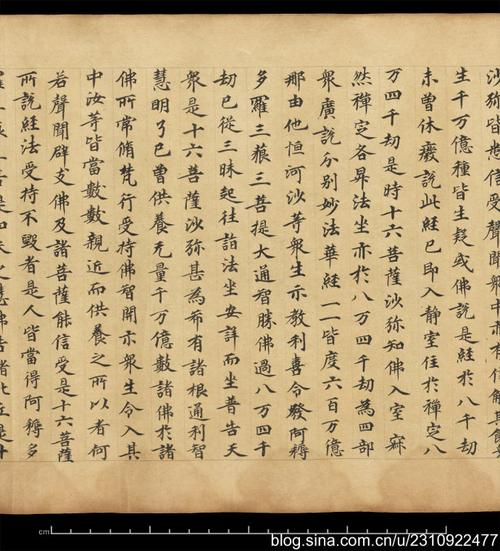 沙弥皆悉信受聲聞衆中亦有信解其
生千万億種皆生疑或佛說是經於八千劫
未曾休癈說此經已即入靜室住於禪定八
万四千劫是時十六菩薩沙弥知佛入室寂
然禪定各昇法坐亦於八万四千劫為四部
衆廣說分別妙法華經一一皆度六百万億
那由他恒河沙等衆生示教利喜令發阿耨
多羅三藐三菩提大通智勝佛過八万四千
劫已從三昧起往詣法坐安詳而坐普告天
衆是十六菩薩沙弥甚為希有諸根通利智
慧明了已曾供養无量千万億數諸佛於諸
佛所常脩梵行受持佛智開示衆生令入其
中汝等皆當數數親近而供養之所以者何
若聲聞辟支佛及諸菩薩能信受是十六菩薩
所說經法受持不毀者是人皆當得阿耨多
之慧佛告諸比丘是十
cm
blog.sina.com.cn/u/2310922477